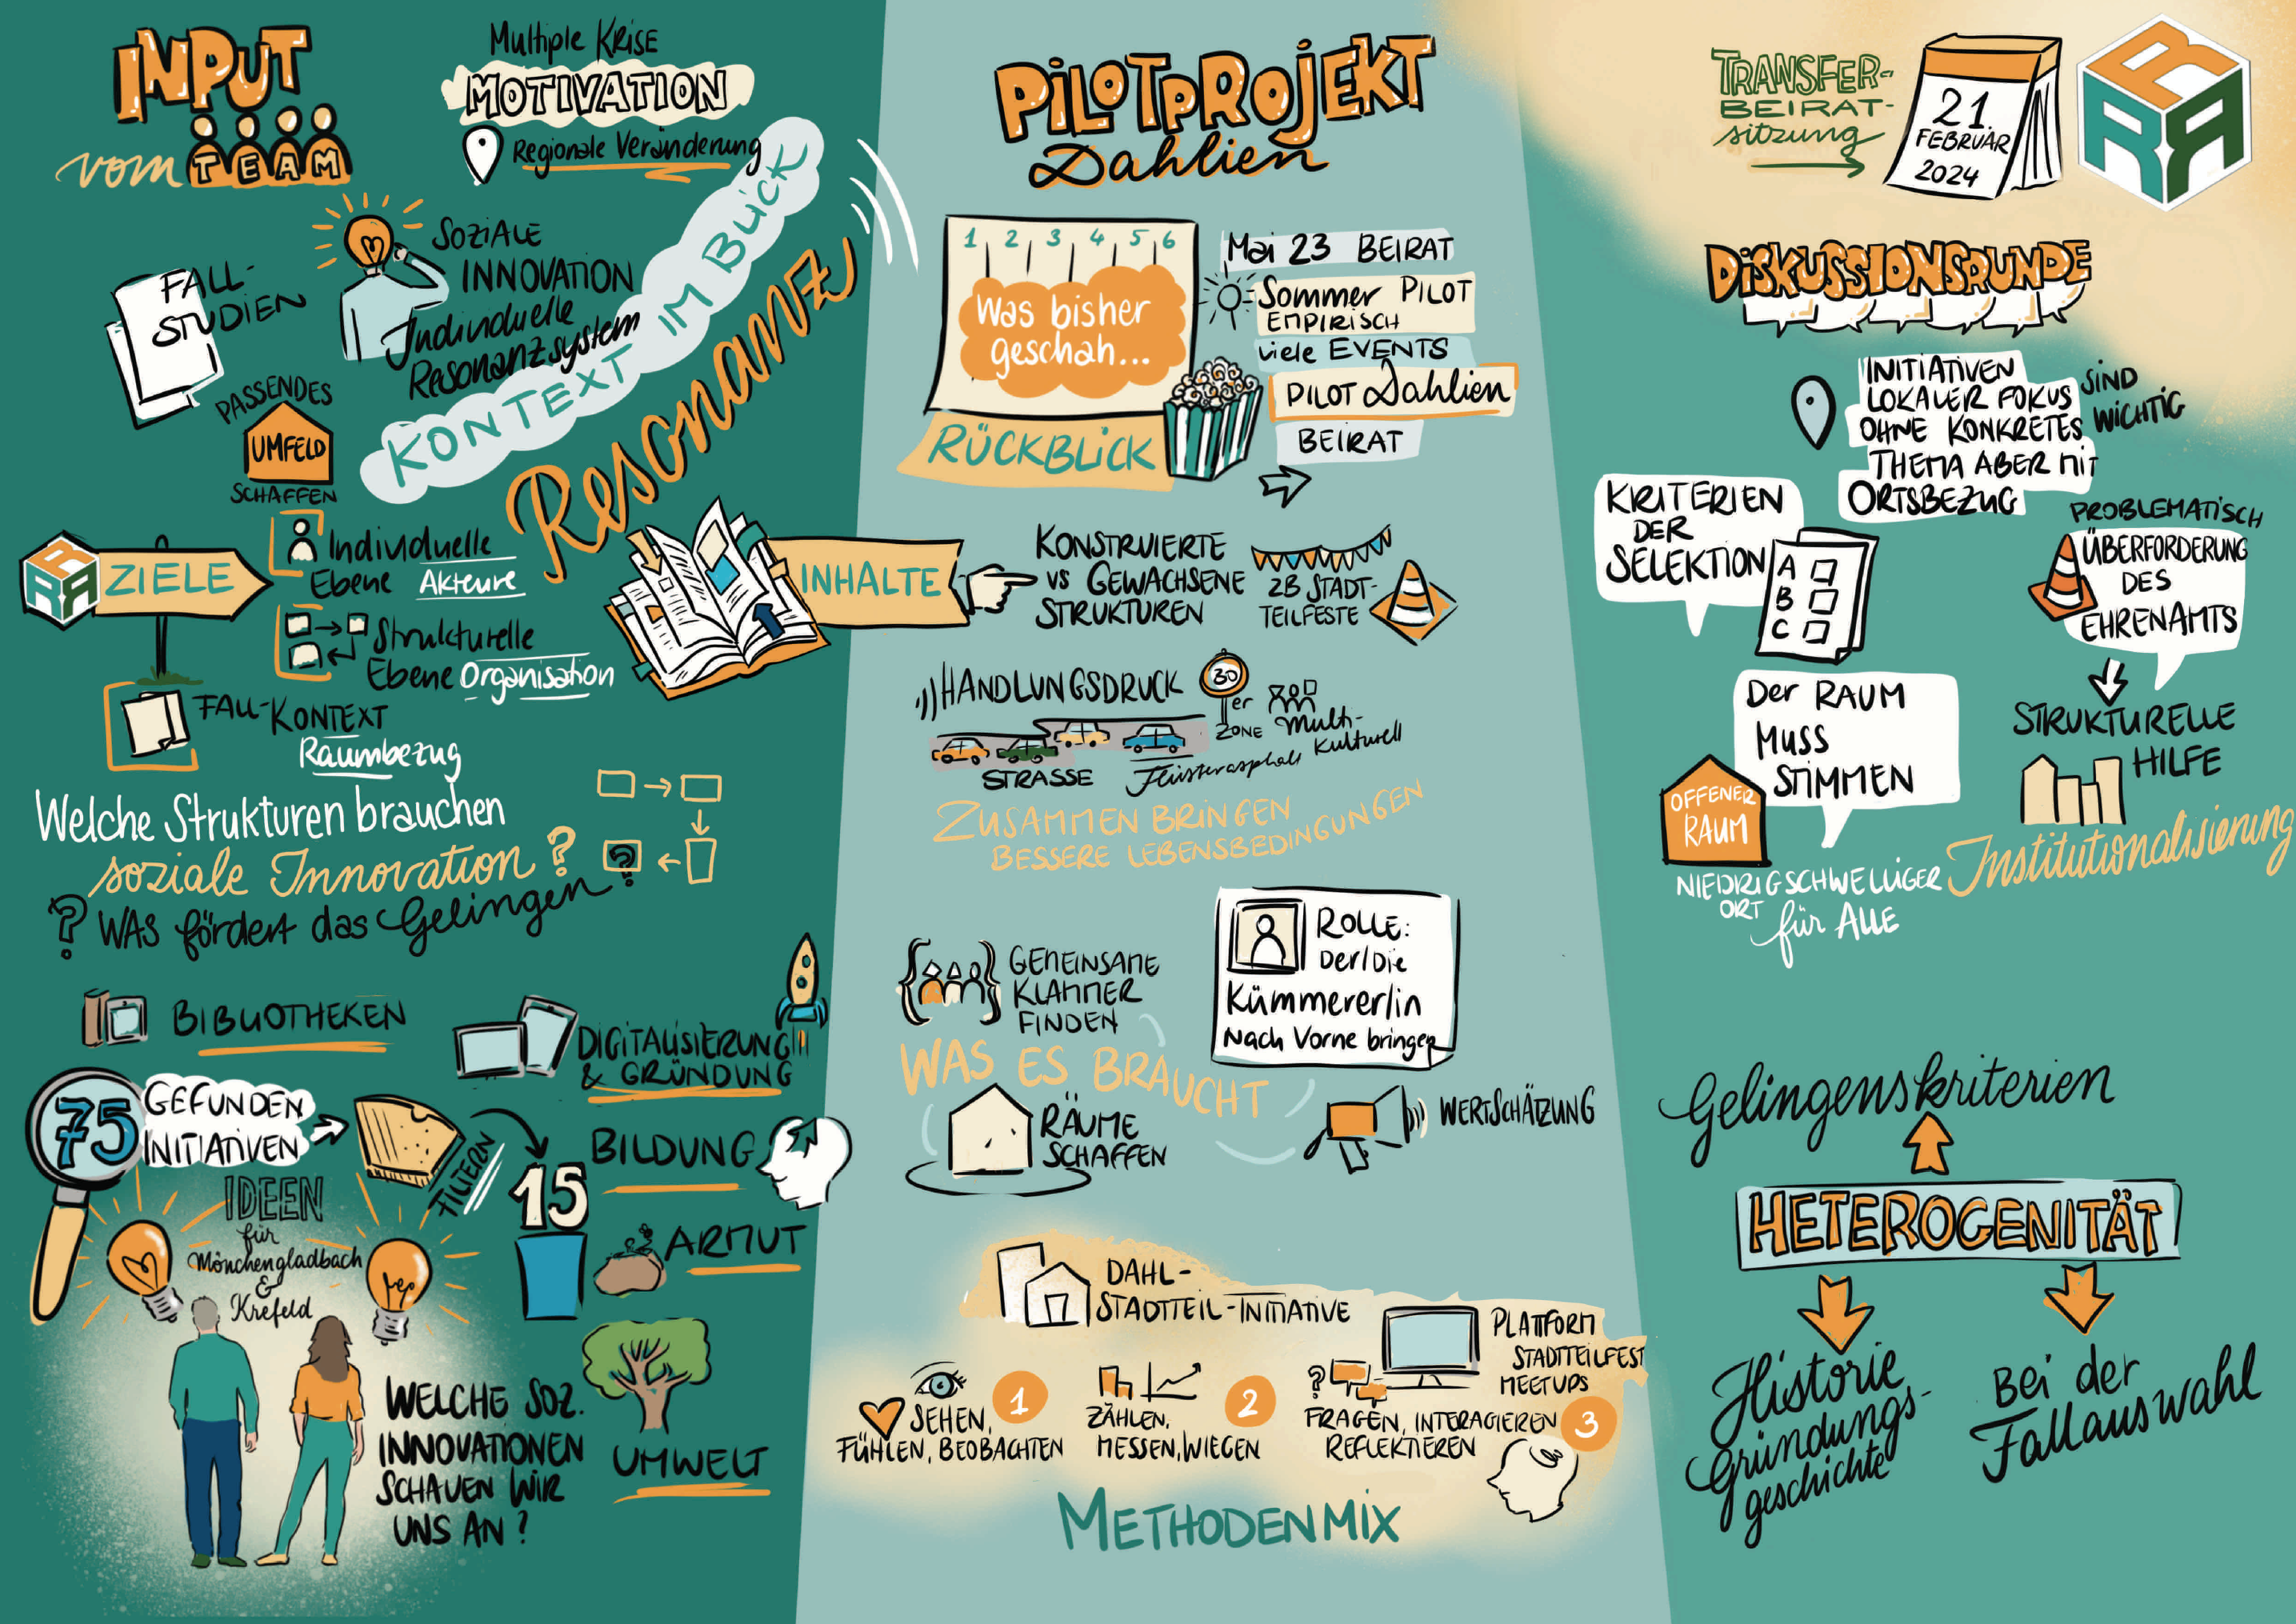 INPUT
vom TEAM
Multiple KRISE
MOTIVATION
Regionale Veränderung
FALL-
STUDIEN
SOZIALE
INNOVATION
Individuelle
Resonanzsystem
KONTEXT IM BLICK
Resonanz
PASSENDES
UMFELD
SCHAFFEN
RRA
ZIELE
Individuelle
Ebene Akteure
Strukturelle
Ebene Organisation
FALL-KONTEXT
Raumbezug
Welche Strukturen brauchen
soziale Innovation?
? WAS fördert das Gelingen?
?
BIBLIOTHEKEN
DIGITALISIERUNG
& GRÜNDUNG
75
GEFUNDEN
INITIATIVEN
FILTERN
15
BILDUNG
ARMUT
UMWELT
IDEEN
für
Mönchengladbach
&
Krefeld
WELCHE SOZ.
INNOVATIONEN
SCHAUEN WIR
UNS AN?
PILOTPROJEKT
Dahlien
1 2 3 4 5 6
Was bisher
geschah...
RÜCKBLICK
Mai 23 BEIRAT
Sommer PILOT
EMPIRISCH
viele EVENTS
PILOT Dahlien
BEIRAT
INHALTE
KONSTRUIERTE
VS GEWACHSENE
STRUKTUREN
ZB STADT-
TEILFESTE
HANDLUNGSDRUCK
30
er
ZONE
Multi-
Kulturell
STRASSE
Flüsterasphalt
ZUSAMMEN BRINGEN
BESSERE LEBENSBEDINGUNGEN
GEMEINSAME
KLAMMER
FINDEN
ROLLE:
Der/Die
Kümmerer/in
Nach Vorne bringen
WAS ES BRAUCHT
RÄUME
SCHAFFEN
WERTSCHÄTZUNG
DAHL-
STADTTEIL-INITIATIVE
PLATTFORM
STADTTEILFEST
MEETUPS
SEHEN, 1
FÜHLEN, BEOBACHTEN
ZÄHLEN, 2
MESSEN, WIEGEN
?
FRAGEN, INTERAGIEREN 3
REFLEKTIEREN
METHODENMIX
TRANSFER-
BEIRAT-
sitzung
21.
FEBRUAR
2024
RRA
DISKUSSIONSRUNDE
INITIATIVEN
LOKALER FOKUS
OHNE KONKRETES
THEMA ABER MIT
ORTSBEZUG
SIND
WICHTIG
KRITERIEN
DER
SELEKTION
A
B
C
PROBLEMATISCH
ÜBERFORDERUNG
DES
EHRENAMTS
Der RAUM
MUSS
STIMMEN
STRUKTURELLE
HILFE
OFFENER
RAUM
NIEDRIGSCHWELLIGER
ORT
für ALLE
Institutionalisierung
Gelingenskriterien
HETEROGENITÄT
Historie
Gründungs-
geschichte
Bei der
Fallauswahl